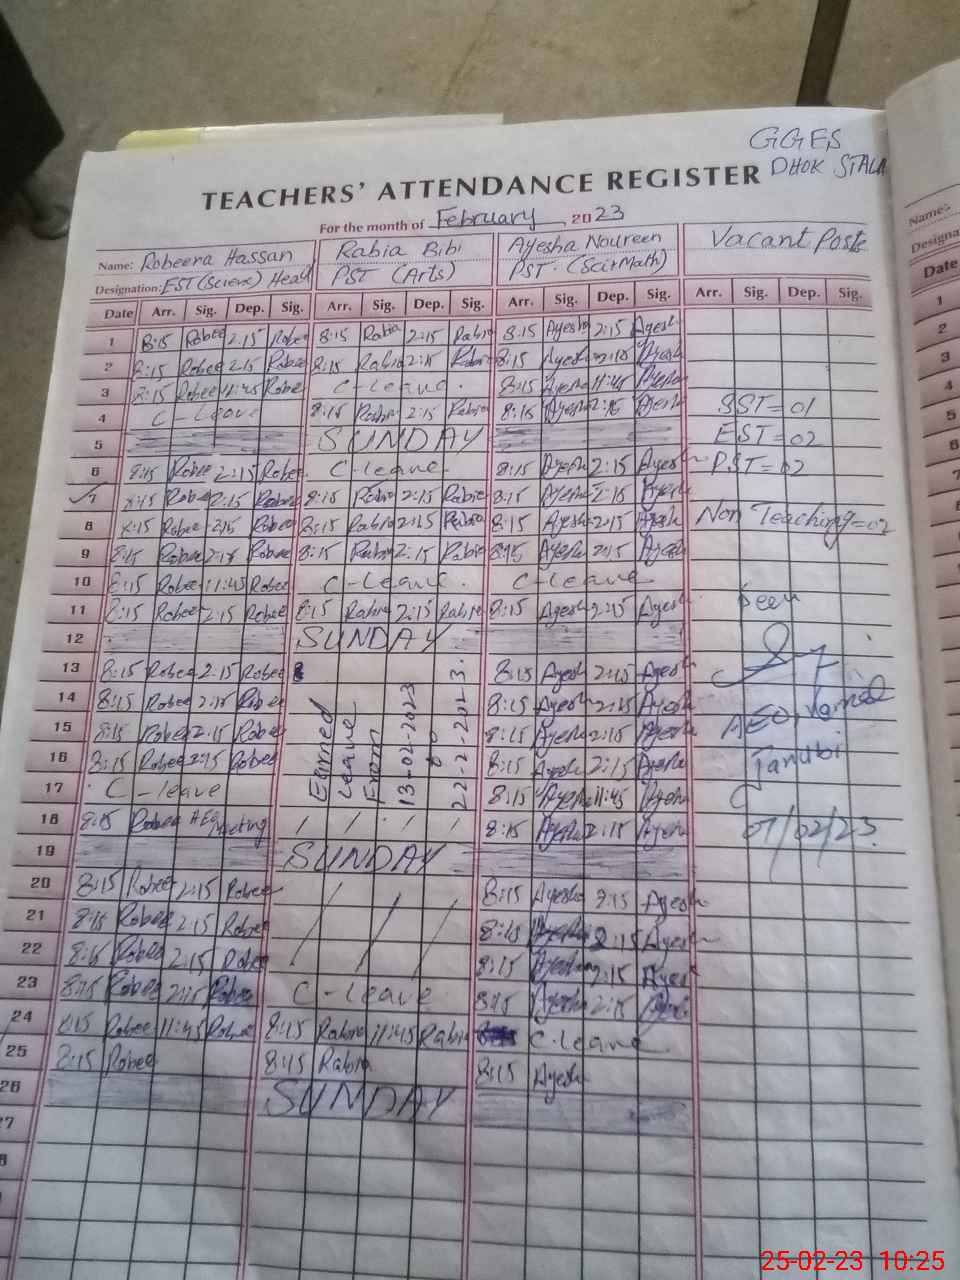 GGES
DHOK STALA
TEACHERS' ATTENDANCE REGISTER
For the month of February 2023
Name: Robeena Hassan Rabia Bibi Ayesha Noureen Vacant Posts
Designation: EST (Science) Head PST (Arts) PST. (Sci+Math)
Date Arr. Sig. Dep. Sig. Arr. Sig. Dep. Sig. Arr. Sig. Dep. Sig. Arr. Sig. Dep. Sig.
1 8:15 Robee 2:15 Robee 8:15 Rabia 2:15 Rabia 8:15 Ayesha 2:15 Ayesh
2 8:15 Robee 2:15 Robee 8:15 Rabia 2:15 Rabia 8:15 Ayesh 2:15 Ayesh
3 8:15 Robee 11:45 Robee C-leave. 8:15 Ayesha 11:45 Ayesha
4 C-Leave 8:15 Rabia 2:15 Rabia 8:15 Ayesha 2:15 Ayesh SST=01
5 SUNDAY EST=02
6 8:15 Robee 2:15 Robee C-leave. 8:15 Ayesh 2:15 Ayesh PST=02
7 8:15 Robee 2:15 Robee 8:15 Rabia 2:15 Rabia 8:15 Ayesha 2:15 Ayesh
8 8:15 Robee 2:15 Robee 8:15 Rabia 2:15 Rabia 8:15 Ayesh 2:15 Ayesh Non Teaching=02
9 8:15 Robee 2:15 Robee 8:15 Rabia 2:15 Rabia 8:15 Ayesha 2:15 Ayesh
10 8:15 Robee 11:45 Robee C-leave. C-leave
11 8:15 Robee 2:15 Robee 8:15 Rabia 2:15 Rabia 8:15 Ayesh 2:15 Ayesh Seen
12 SUNDAY
13 8:15 Robee 2:15 Robee 8:15 Ayesh 2:15 Ayesh
14 8:15 Robee 2:15 Robee 8:15 Ayesh 2:15 Ayesh
15 8:15 Robee 2:15 Robee 8:15 Ayesha 2:15 Ayesh AEO,
16 8:15 Robee 2:15 Robee 8:15 Ayesh 2:15 Ayesh
17 C-leave 8:15 Ayesha 11:45 Ayesh
Earned
Leave
From
13-02-2023
to
22-2-2023.
18 8:15 Robee AEO meeting 8:15 Ayesh 2:15 Ayesh 07/02/23
19 SUNDAY
20 8:15 Robee 2:15 Robee 8:15 Ayesha 2:15 Ayesh
21 8:15 Robee 2:15 Robee 8:15 Ayesha 2:15 Ayesh
22 8:15 Robee 2:15 Robee 8:15 Ayesha 2:15 Ayesh
23 8:15 Robee 2:15 Robee C-leave 8:15 Ayesha 2:15 Ayesh
24 8:15 Robee 11:45 Robee 8:15 Rabia 11:45 Rabia C-leave
25 8:15 Robee 8:15 Rabia 8:15 Ayesh
26 SUNDAY
27
8
Name:-
Designa
Date
1
2
3
4
5
6
7
8
9
10
11
12
13
14
15
16
25-02-23 10:25